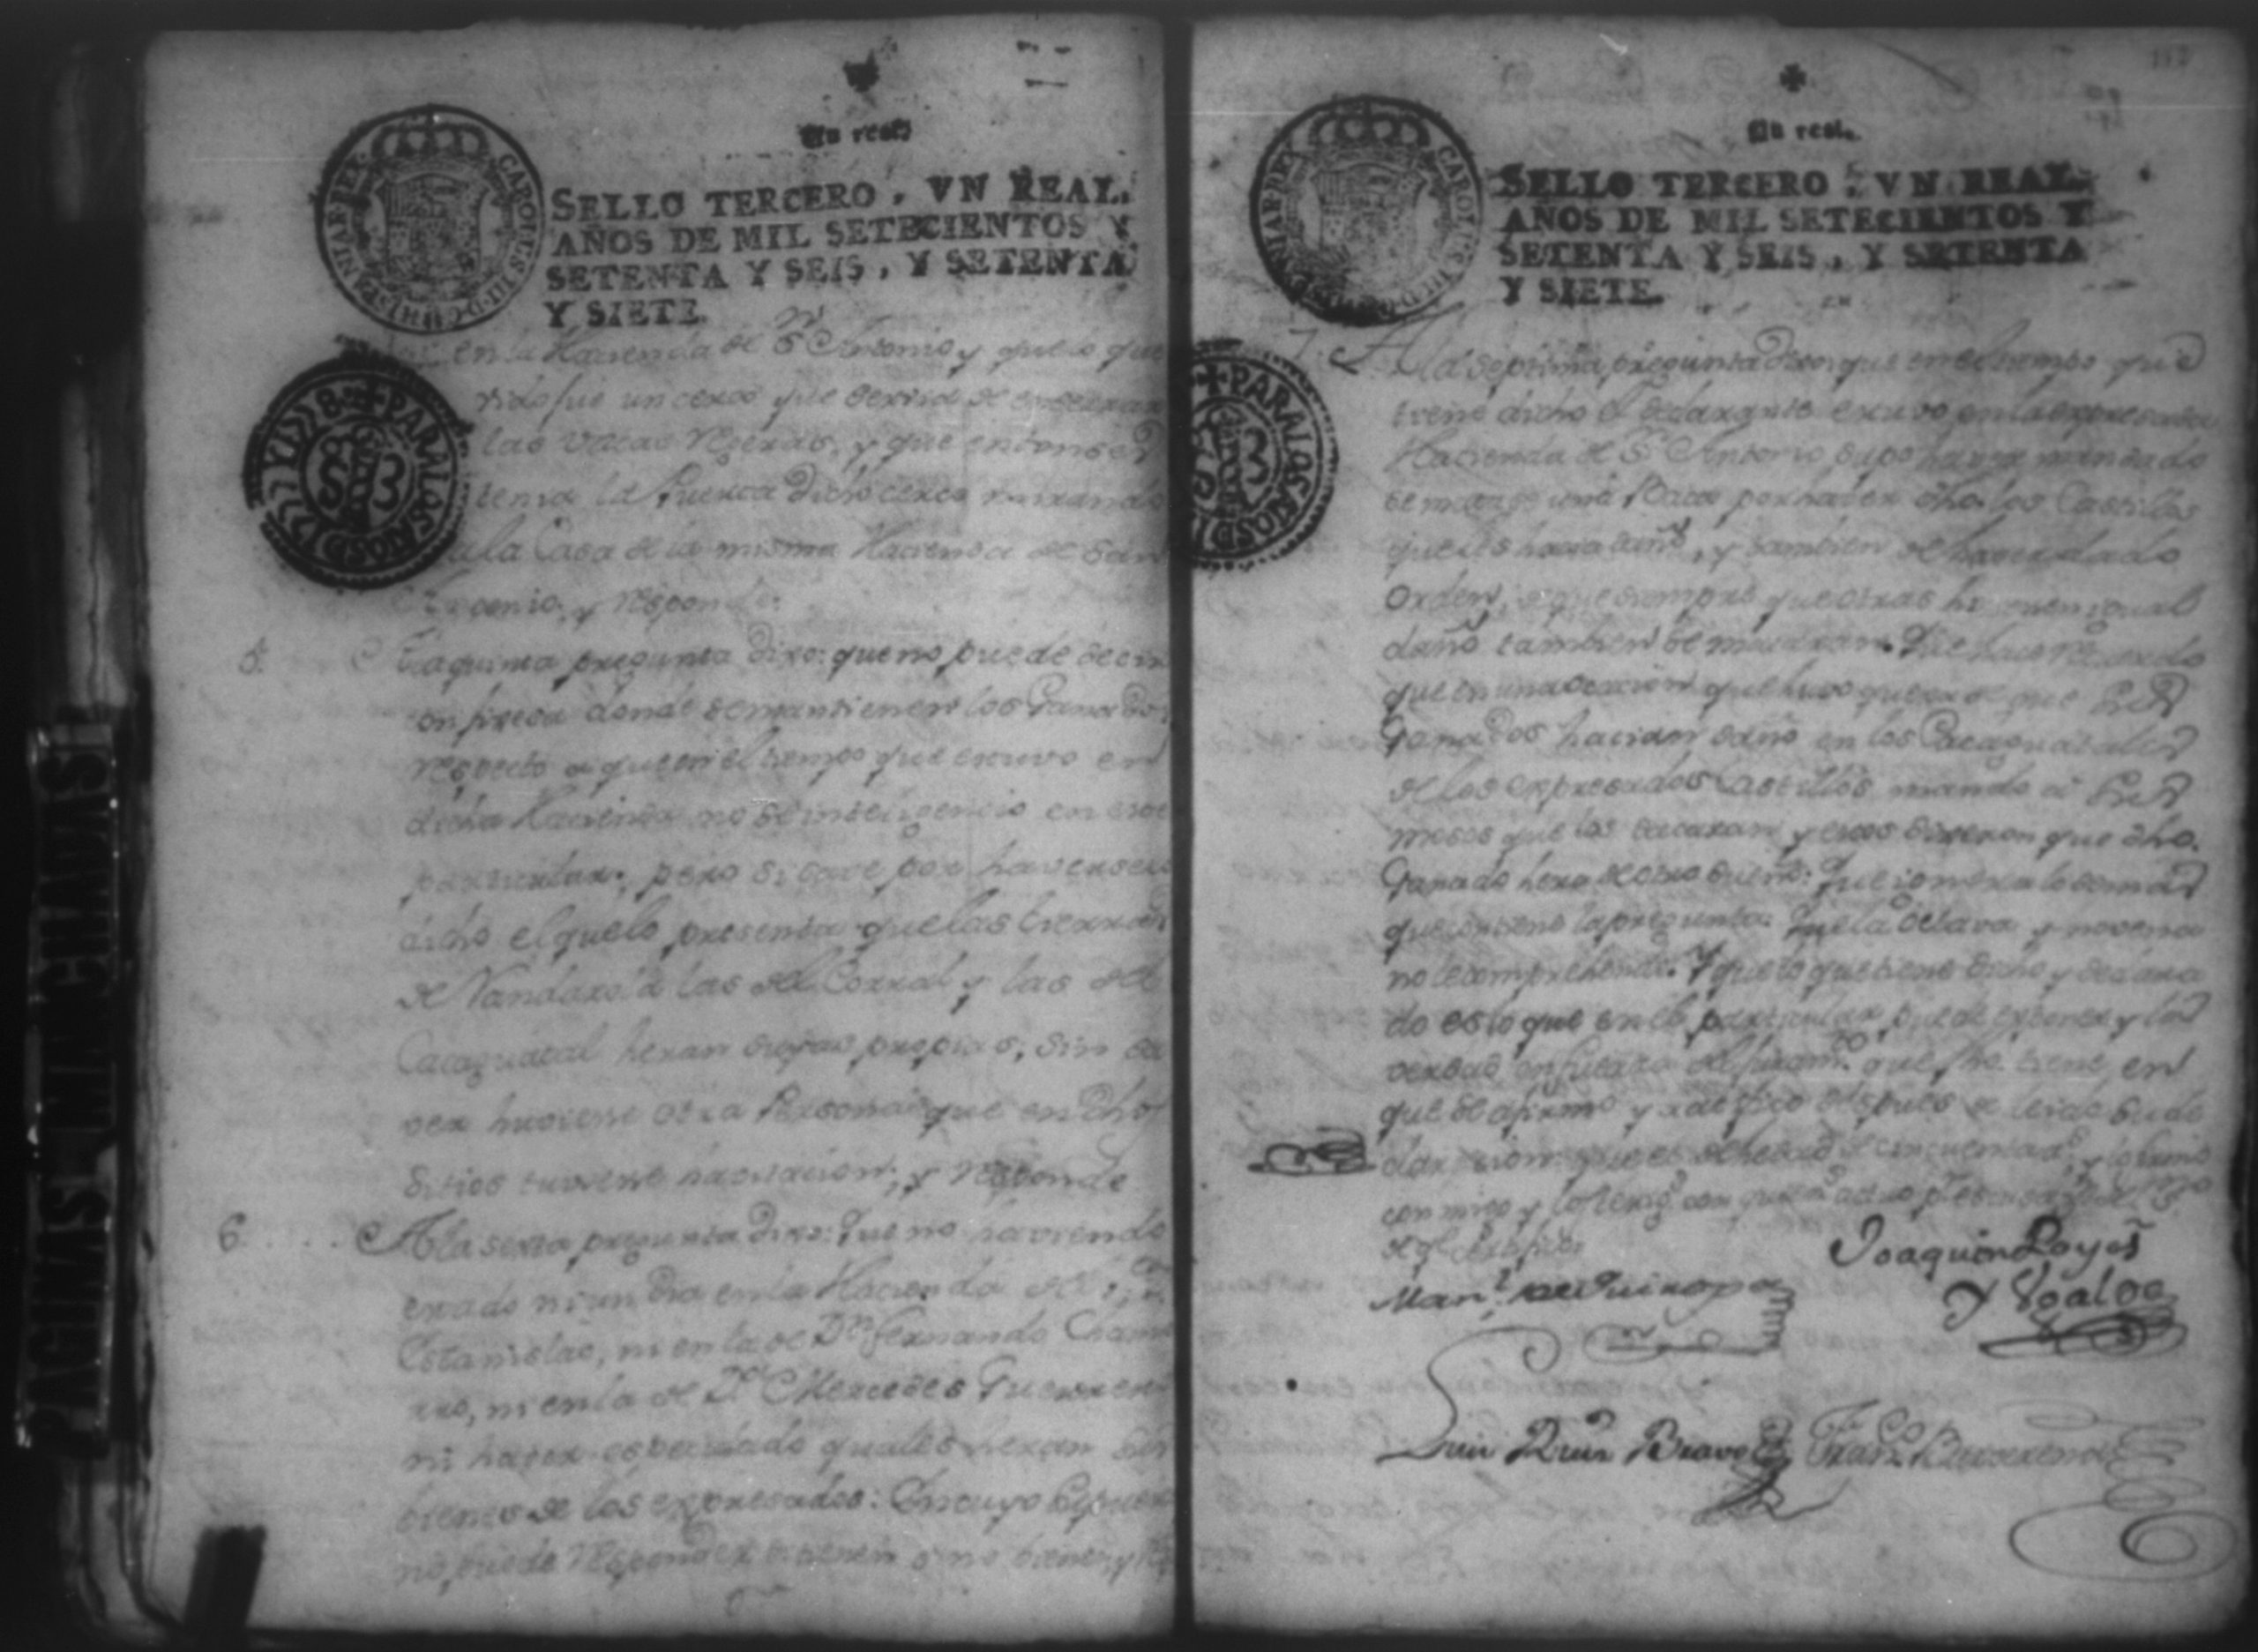 Un real
SELLO TERCERO, VN REAL,
AÑOS DE MIL SETECIENTOS Y
SETENTA Y SEIS, Y SETENTA
Y SIETE.
CAROLUS III D G HISPANIAR REX
PARA LOS AÑOS D 1777 Y 1778
en la Hacienda de Sn Antonio y que lo que
vido fue un cerco que servia de encerrar
las vacas, y que entonses
tenia la Puerta dicho cerco mirando
a la Casa de la misma Hacienda de San
Antonio, y responde
5. A la quinta pregunta dixo: que no puede decir
donde se mantienen los Ganados
respecto a que en el tiempo que estuvo en
dicha Hacienda no se inteligencio en este
particular, pero si save por haverselo
dicho el que lo presenta que las tierras
de Nandarola las del Corral y las del
Cacaguatal heran suyas propias, sin
ver huviese otra Persona que en dhos
Sitios tuviese havitacion, y responde
6. A la sexta pregunta dixo: Que no haviendo
estado ni un dia en la Hacienda de
Estanislao, ni en la de Dn Fernando Chamo
rro, ni en la de Da Mercedes Guerrero
ni haver especulado quales heran los
vienes de los expresados: En cuyo supuesto
no puede responder si tienen o no vienes, y
Un real.
SELLO TERCERO, VN REAL,
AÑOS DE MIL SETECIENTOS Y
SETENTA Y SEIS, Y SETENTA
Y SIETE.
CAROLUS III D G HISPANIAR REX
PARA LOS AÑOS D
7. A la septima pregunta dixo: que en el tiempo que
tiene dicho el declarante estuvo en la expresada
Hacienda de Sn Antonio supo haver mandado
se matase una Baca por haver dho. los Castillos
que les hacia daño, y tambien de haver dado
orden, que siempre que otras hisiesen igual
daño tambien se mataran. Que hace recuerdo
que en una ocacion que huvo quexa de que sus
Ganados hacian daño en los Cacaguatales
de los expresados Castillos mando a sus
mosos que los sacaran y estos dixeron que dho.
Ganado hera de otro dueño: Que ignora lo demas
que contiene la pregunta. Que la octava y novena
no le comprehende. Y que lo que tiene dicho y declara
do es lo que en el particular puede exponer y la
verdad en fuerza del juramto. que fho. tiene en
que se afirmo y ratifico despues de leida su de
claracion: que es de hedad de cinquenta as. y lo firmo
conmigo y los testigos con quienes actuo
Joaquin Loyes
Y Ygaloe
Manl. de Quiroga
Luis Bravo
Franco
PAGINAS MANCHADAS